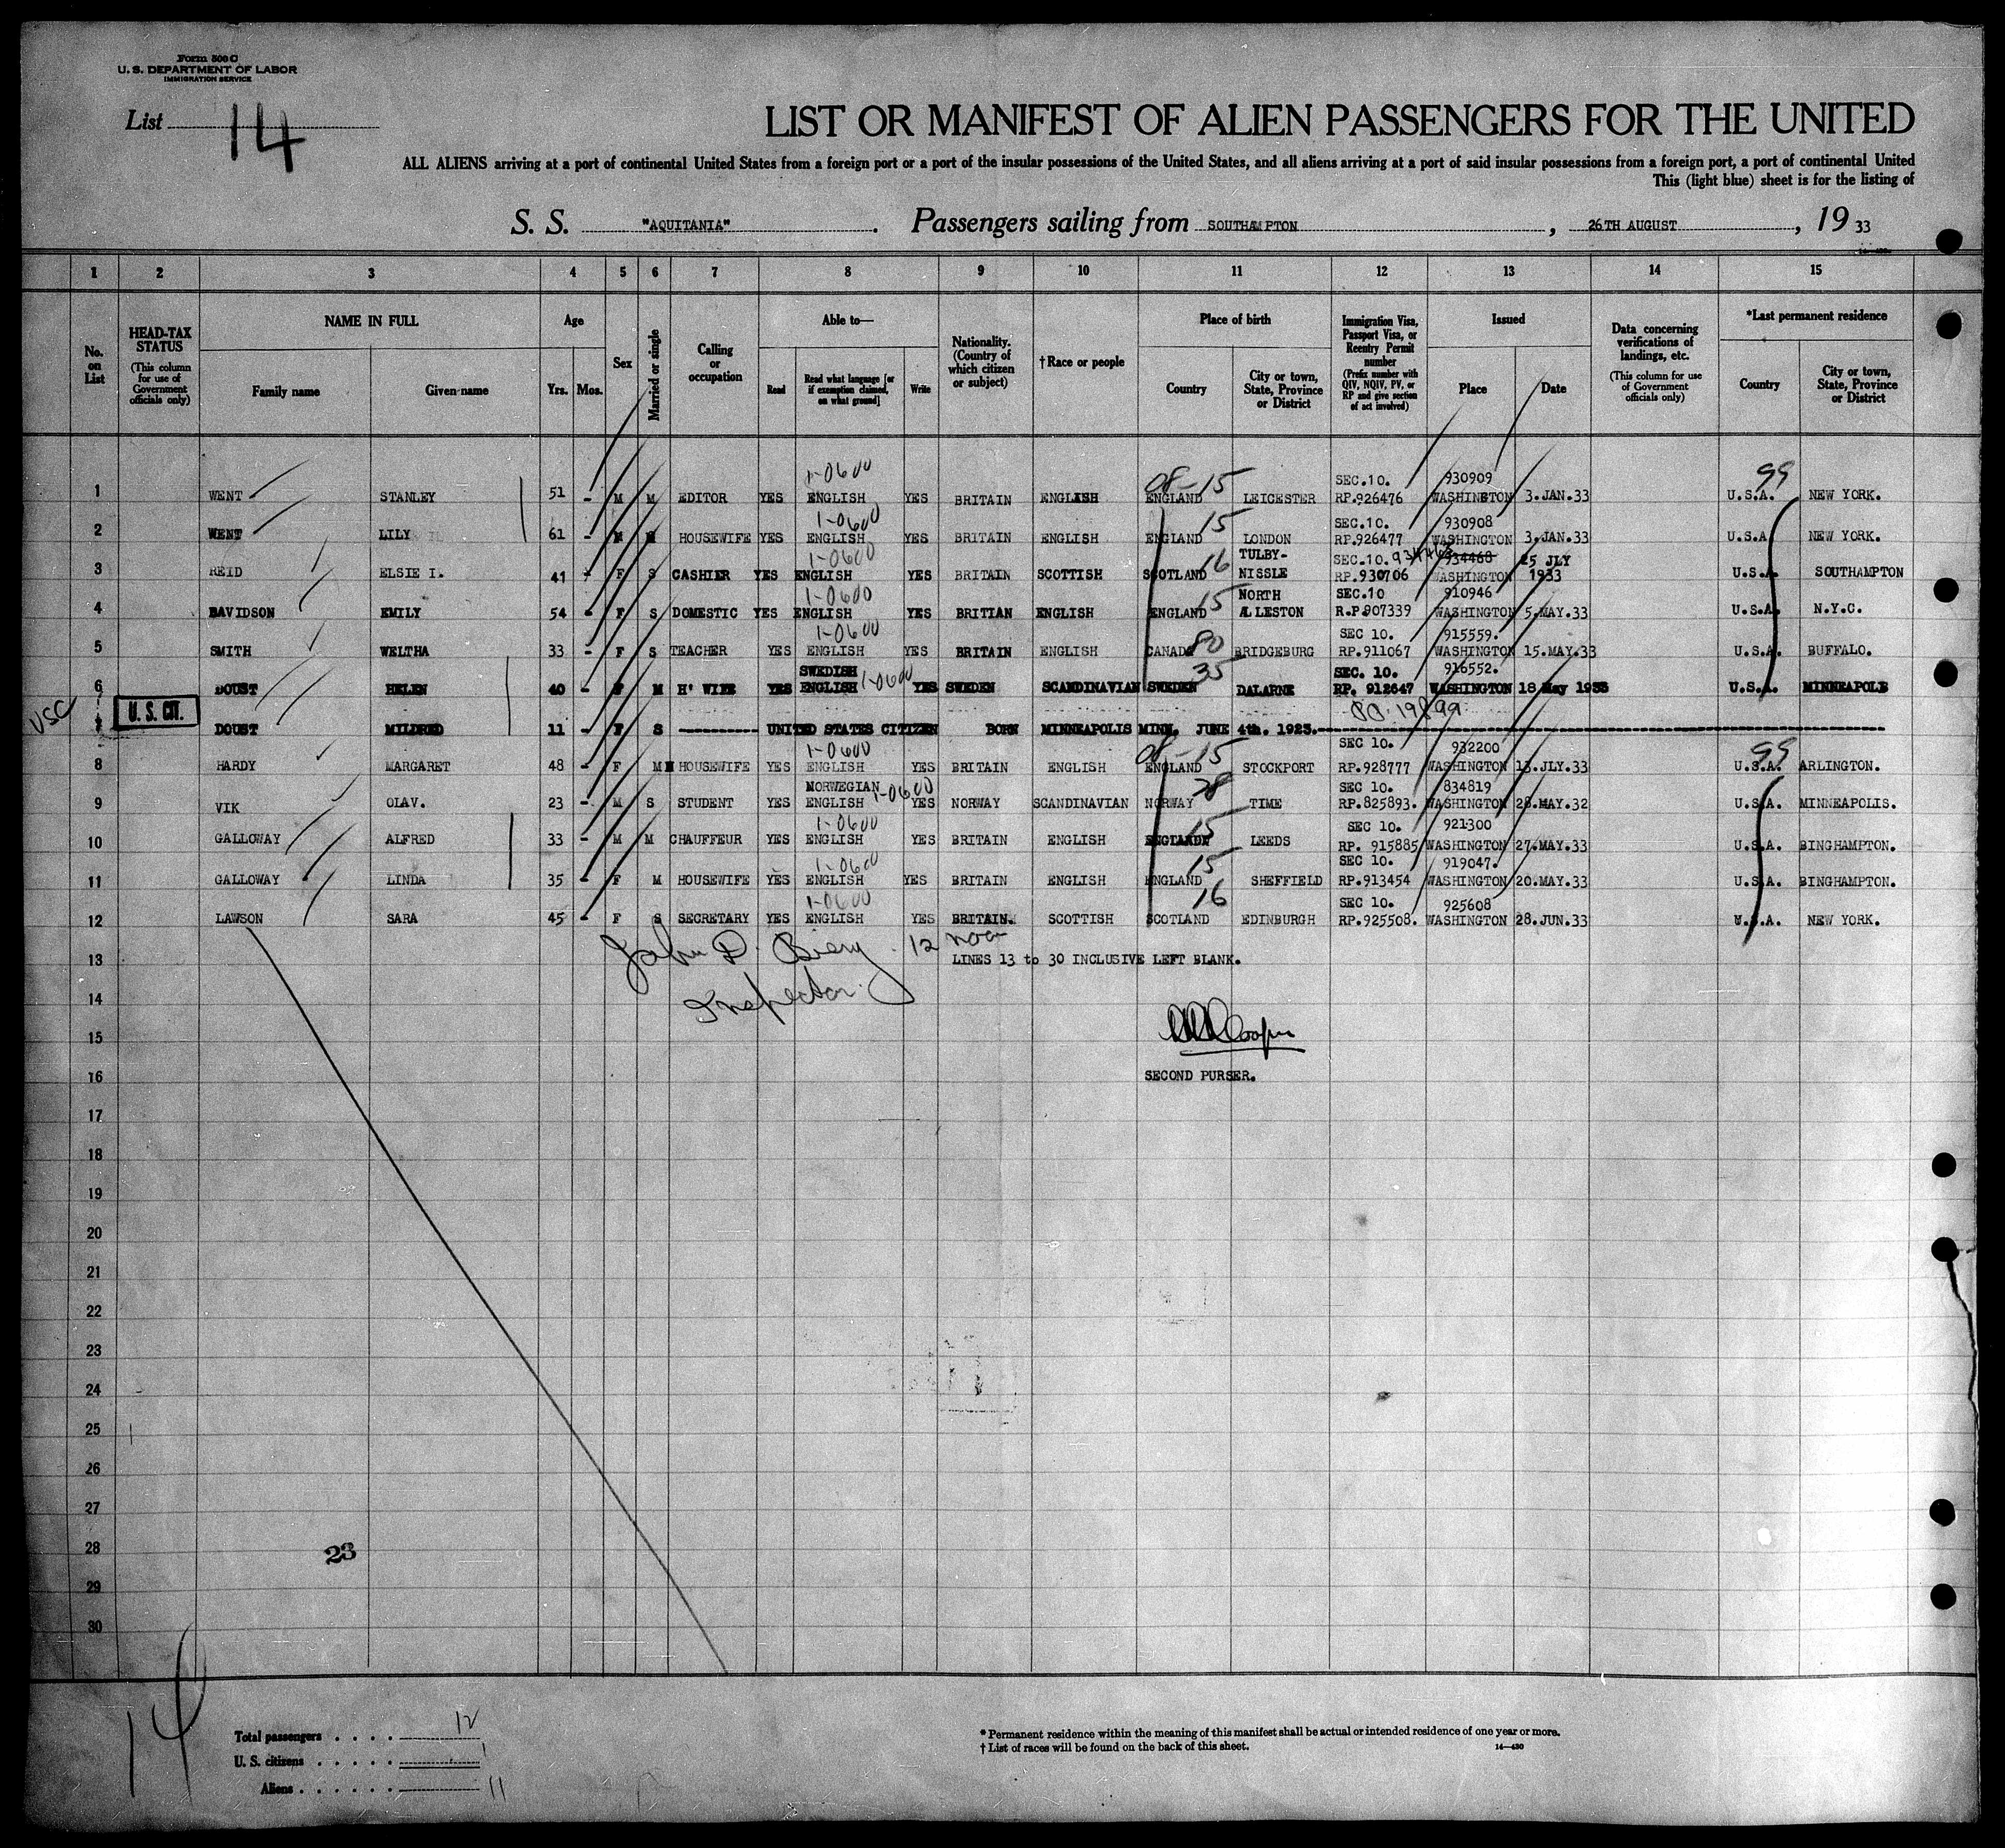 Form 500 C
U. S. DEPARTMENT OF LABOR
IMMIGRATION SERVICE
List 14
LIST OR MANIFEST OF ALIEN PASSENGERS FOR THE UNITED
ALL ALIENS arriving at a port of continental United States from a foreign port or a port of the insular possessions of the United States, and all aliens arriving at a port of said insular possessions from a foreign port, a port of continental United
This (light blue) sheet is for the listing of
S. S. "AQUITANIA". Passengers sailing from SOUTHAMPTON, 26TH AUGUST, 19 33
1 2 3 4 5 6 7 8 9 10 11 12 13 14 15
No. on List
HEAD-TAX STATUS
(This column for use of Government officials only)
NAME IN FULL
Family name Given name
Age
Yrs. Mos.
Sex
Married or single
Calling or occupation
Able to—
Read
Read what language [or if exemption claimed, on what ground]
Write
Nationality. (Country of which citizen or subject)
†Race or people
Place of birth
Country
City or town, State, Province or District
Immigration Visa, Passport Visa, or Reentry Permit number
(Prefix number with QIV, NQIV, PV, or RP and give section of act involved)
Issued
Place Date
Data concerning verifications of landings, etc.
(This column for use of Government officials only)
*Last permanent residence
Country
City or town, State, Province or District
1-0600 08-15 SEC.10. 930909 99
1 WENT STANLEY 51 - M M EDITOR YES ENGLISH YES BRITAIN ENGLISH ENGLAND LEICESTER RP.926476 WASHINGTON 3.JAN.33 U.S.A. NEW YORK.
1-0600 15 SEC.10. 930908
2 WENT LILY 61 - M HOUSEWIFE YES ENGLISH YES BRITAIN ENGLISH ENGLAND LONDON RP.926477 WASHINGTON 3.JAN.33 U.S.A NEW YORK.
1-0600 16 TULBY- SEC.10. 934468 25 JLY
3 REID ELSIE I. 41 - F S CASHIER YES ENGLISH YES BRITAIN SCOTTISH SCOTLAND NISSLE RP.930706 WASHINGTON 1933 U.S.A. SOUTHAMPTON
1-0600 15 NORTH SEC.10 910946
4 DAVIDSON EMILY 54 - F S DOMESTIC YES ENGLISH YES BRITIAN ENGLISH ENGLAND ALLESTON R.P.907339 WASHINGTON 5.MAY.33 U.S.A. N.Y.C.
1-0600 80 SEC 10. 915559.
5 SMITH WELTHA 33 - F S TEACHER YES ENGLISH YES BRITAIN ENGLISH CANADA BRIDGEBURG RP.911067 WASHINGTON 15.MAY.33 U.S.A. BUFFALO.
SWEDISH 1-0600 35 SEC. 10. 916552.
6 DOUST HELEN 40 - F M H' WIFE YES ENGLISH YES SWEDEN SCANDINAVIAN SWEDEN DALARNE RP. 912647 WASHINGTON 18 May 1933 U.S.A. MINNEAPOLE
USC U. S. CIT.
DOUST MILDRED 11 - F S UNITED STATES CITIZEN BORN MINNEAPOLIS MINN. JUNE 4th. 1923.
1-0600 08-15 SEC 10. 932200 99
8 HARDY MARGARET 48 - F M HOUSEWIFE YES ENGLISH YES BRITAIN ENGLISH ENGLAND STOCKPORT RP.928777 WASHINGTON 13.JLY.33 U.S.A. ARLINGTON.
NORWEGIAN 1-0600 28 SEC 10. 834819
9 VIK OLAV. 23 - M S STUDENT YES ENGLISH YES NORWAY SCANDINAVIAN NORWAY TIME RP.825893. WASHINGTON 28.MAY.32 U.S.A. MINNEAPOLIS.
1-0600 15 SEC 10. 921300
10 GALLOWAY ALFRED 33 - M M CHAUFFEUR YES ENGLISH YES BRITAIN ENGLISH LEEDS RP. 915885 WASHINGTON 27.MAY.33 U.S.A. BINGHAMPTON.
1-0600 15 SEC 10. 919047.
11 GALLOWAY LINDA 35 - F M HOUSEWIFE YES ENGLISH YES BRITAIN ENGLISH ENGLAND SHEFFIELD RP.913454 WASHINGTON 20.MAY.33 U.S.A. BINGHAMPTON.
1-0600 16 SEC 10. 925608
12 LAWSON SARA 45 - F S SECRETARY YES ENGLISH YES BRITAIN. SCOTTISH SCOTLAND EDINBURGH RP.925508. WASHINGTON 28.JUN.33 U.S.A. NEW YORK.
John D. Biery. 12 noon
13 LINES 13 to 30 INCLUSIVE LEFT BLANK.
Inspector.
14
15 Cooper
16 SECOND PURSER.
17
18
19
20
21
22
23
24
25
26
27
28 23
29
30
14
Total passengers . . . . 12
U. S. citizens . . . . . 1
Aliens . . . . . . 11
* Permanent residence within the meaning of this manifest shall be actual or intended residence of one year or more.
† List of races will be found on the back of this sheet. 14—430